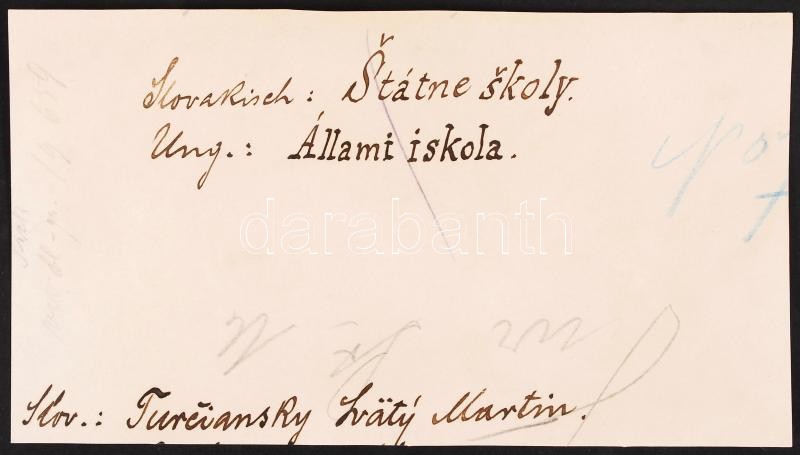 Slovakisch: Štátne školy.
Ung.: Állami iskola.
darabanth
Slov.: Turčiansky Svätý Martin.